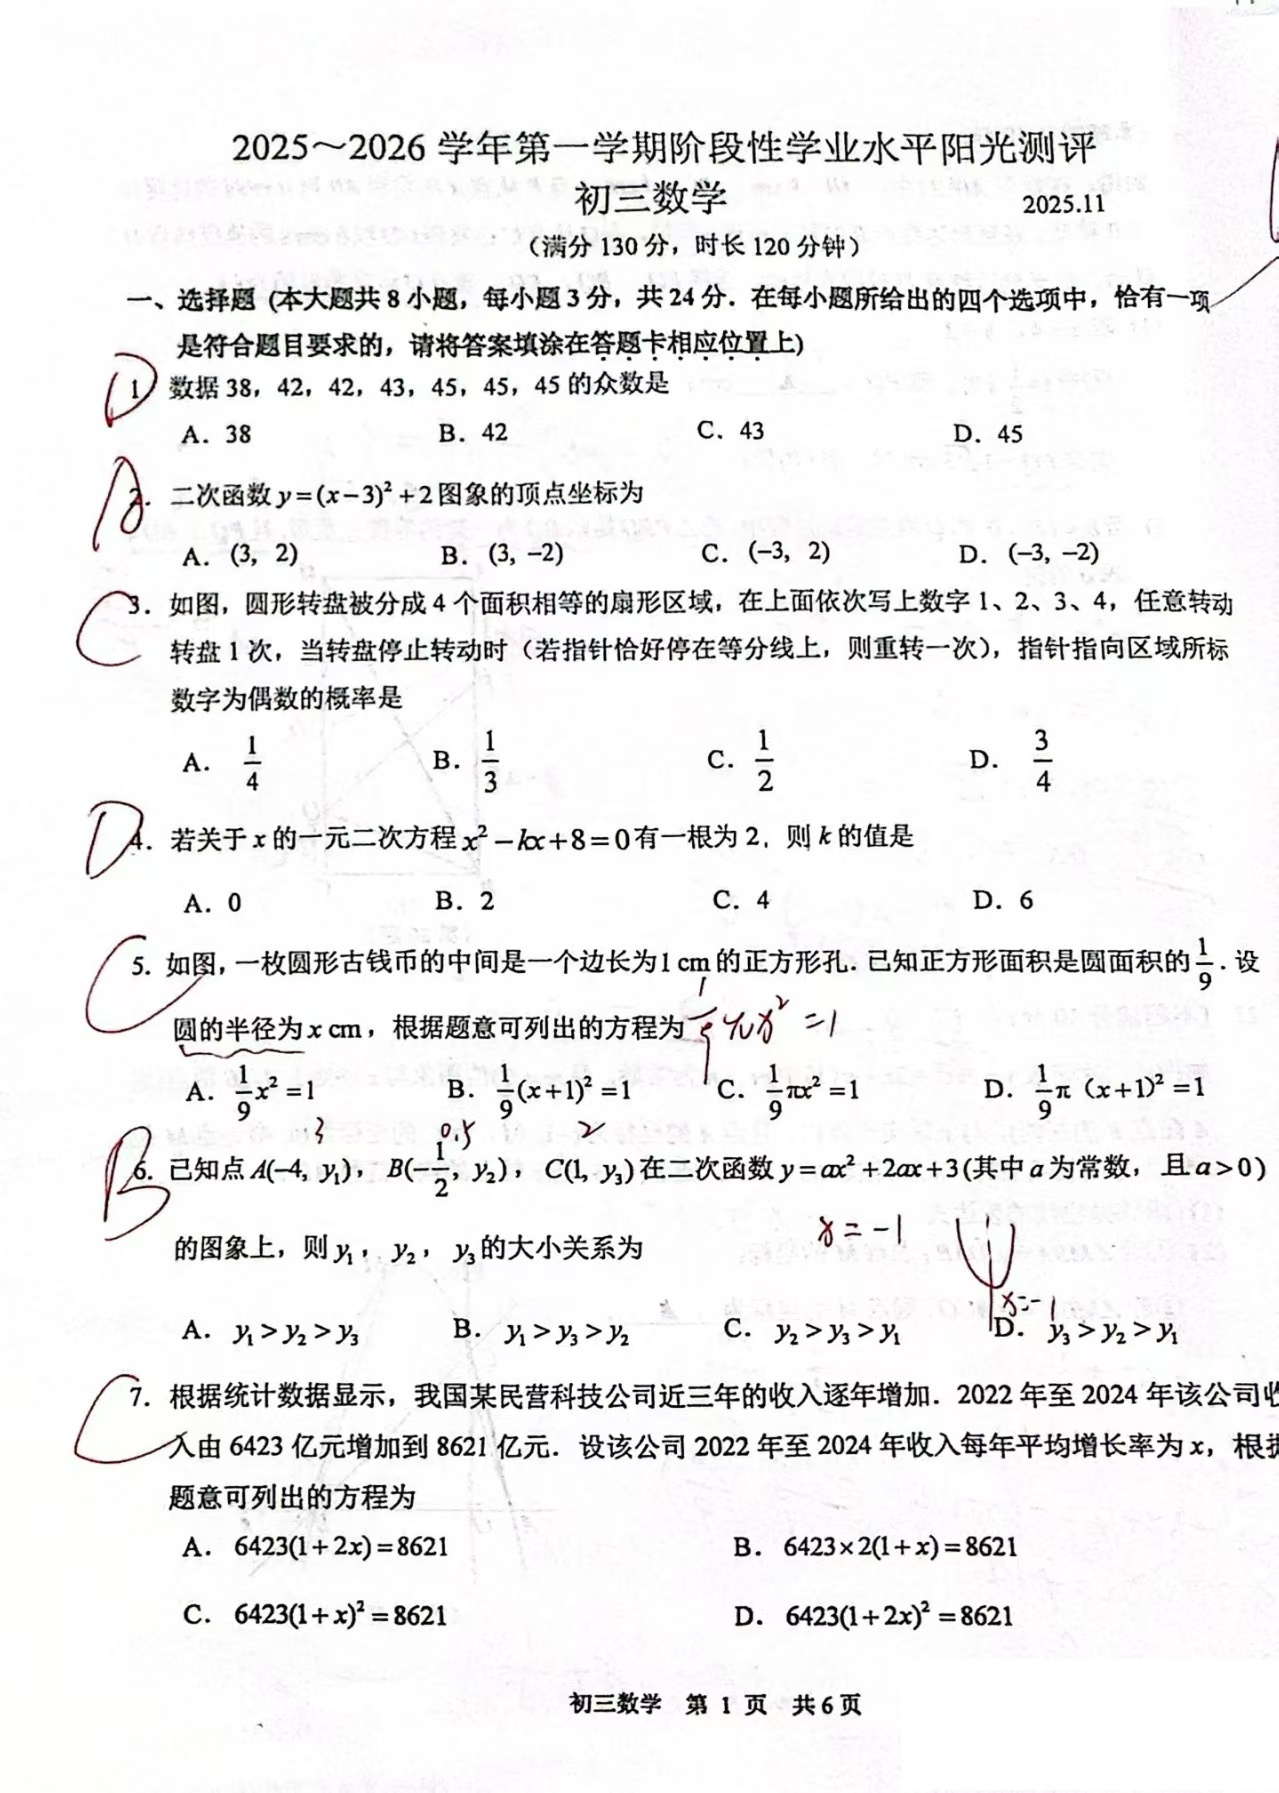 2025～2026 学年第一学期阶段性学业水平阳光测评
初三数学 2025.11
（满分 130 分，时长 120 分钟）
一、选择题 (本大题共 8 小题，每小题 3 分，共 24 分．在每小题所给出的四个选项中，恰有一项
是符合题目要求的，请将答案填涂在答题卡相应位置上)
D 1. 数据 38，42，42，43，45，45，45 的众数是
A．38 B．42 C．43 D．45
A 2. 二次函数 y=(x−3)²+2 图象的顶点坐标为
A．(3，2) B．(3, −2) C．(−3，2) D．(−3, −2)
C 3．如图，圆形转盘被分成 4 个面积相等的扇形区域，在上面依次写上数字 1、2、3、4，任意转动
转盘 1 次，当转盘停止转动时（若指针恰好停在等分线上，则重转一次），指针指向区域所标
数字为偶数的概率是
A． 1/4 B．1/3 C．1/2 D． 3/4
D 4．若关于 x 的一元二次方程 x²−kx+8=0 有一根为 2，则 k 的值是
A．0 B．2 C．4 D．6
C 5. 如图，一枚圆形古钱币的中间是一个边长为 1 cm 的正方形孔．已知正方形面积是圆面积的 1/9．设
圆的半径为 x cm，根据题意可列出的方程为 1/9 πx²=1
A．1/9x²=1 B．1/9(x+1)²=1 C．1/9πx²=1 D．1/9π（x+1)²=1
3 0.5 2
B 6. 已知点 A(−4, y₁)，B(−1/2, y₂)，C(1, y₃) 在二次函数 y=ax²+2ax+3 (其中 a 为常数，且 a>0)
x=−1
的图象上，则 y₁，y₂，y₃ 的大小关系为
x=−1
A．y₁>y₂>y₃ B．y₁>y₃>y₂ C．y₂>y₃>y₁ D．y₃>y₂>y₁
C 7. 根据统计数据显示，我国某民营科技公司近三年的收入逐年增加．2022 年至 2024 年该公司收
入由 6423 亿元增加到 8621 亿元．设该公司 2022 年至 2024 年收入每年平均增长率为 x，根据
题意可列出的方程为
A．6423(1+2x)=8621 B．6423×2(1+x)=8621
C．6423(1+x)²=8621 D．6423(1+2x)²=8621
初三数学 第 1 页 共 6 页